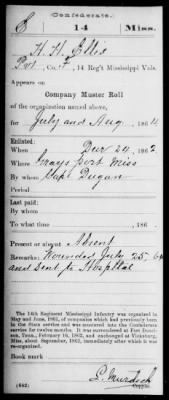 (Confederate.)
E 14 Miss.
H. H. Ellis
Pvt, Co. F, 14 Reg't Mississippi Vols.
Appears on
Company Muster Roll
of the organization named above,
for July and Aug, 1864
Enlisted:
When 24, 1862
Where Grays Port Miss
By whom Cap Dugan
Period
Last paid:
By whom
To what time , 186 .
Present or absent Absent
Remarks: Wounded July 25, 64
and sent to Hospital
The 14th Regiment Mississippi Infantry was organized in
May and June, 1861, of companies which had previously been
in the State service and were mustered into the Confederate
service for twelve months. It was surrendered at Fort Donelson,
Tenn., February 16, 1862, and exchanged at Vicksburg,
Miss., about September, 1862, immediately after which it was
re-organized.
Book mark:
(642)
Copyist.